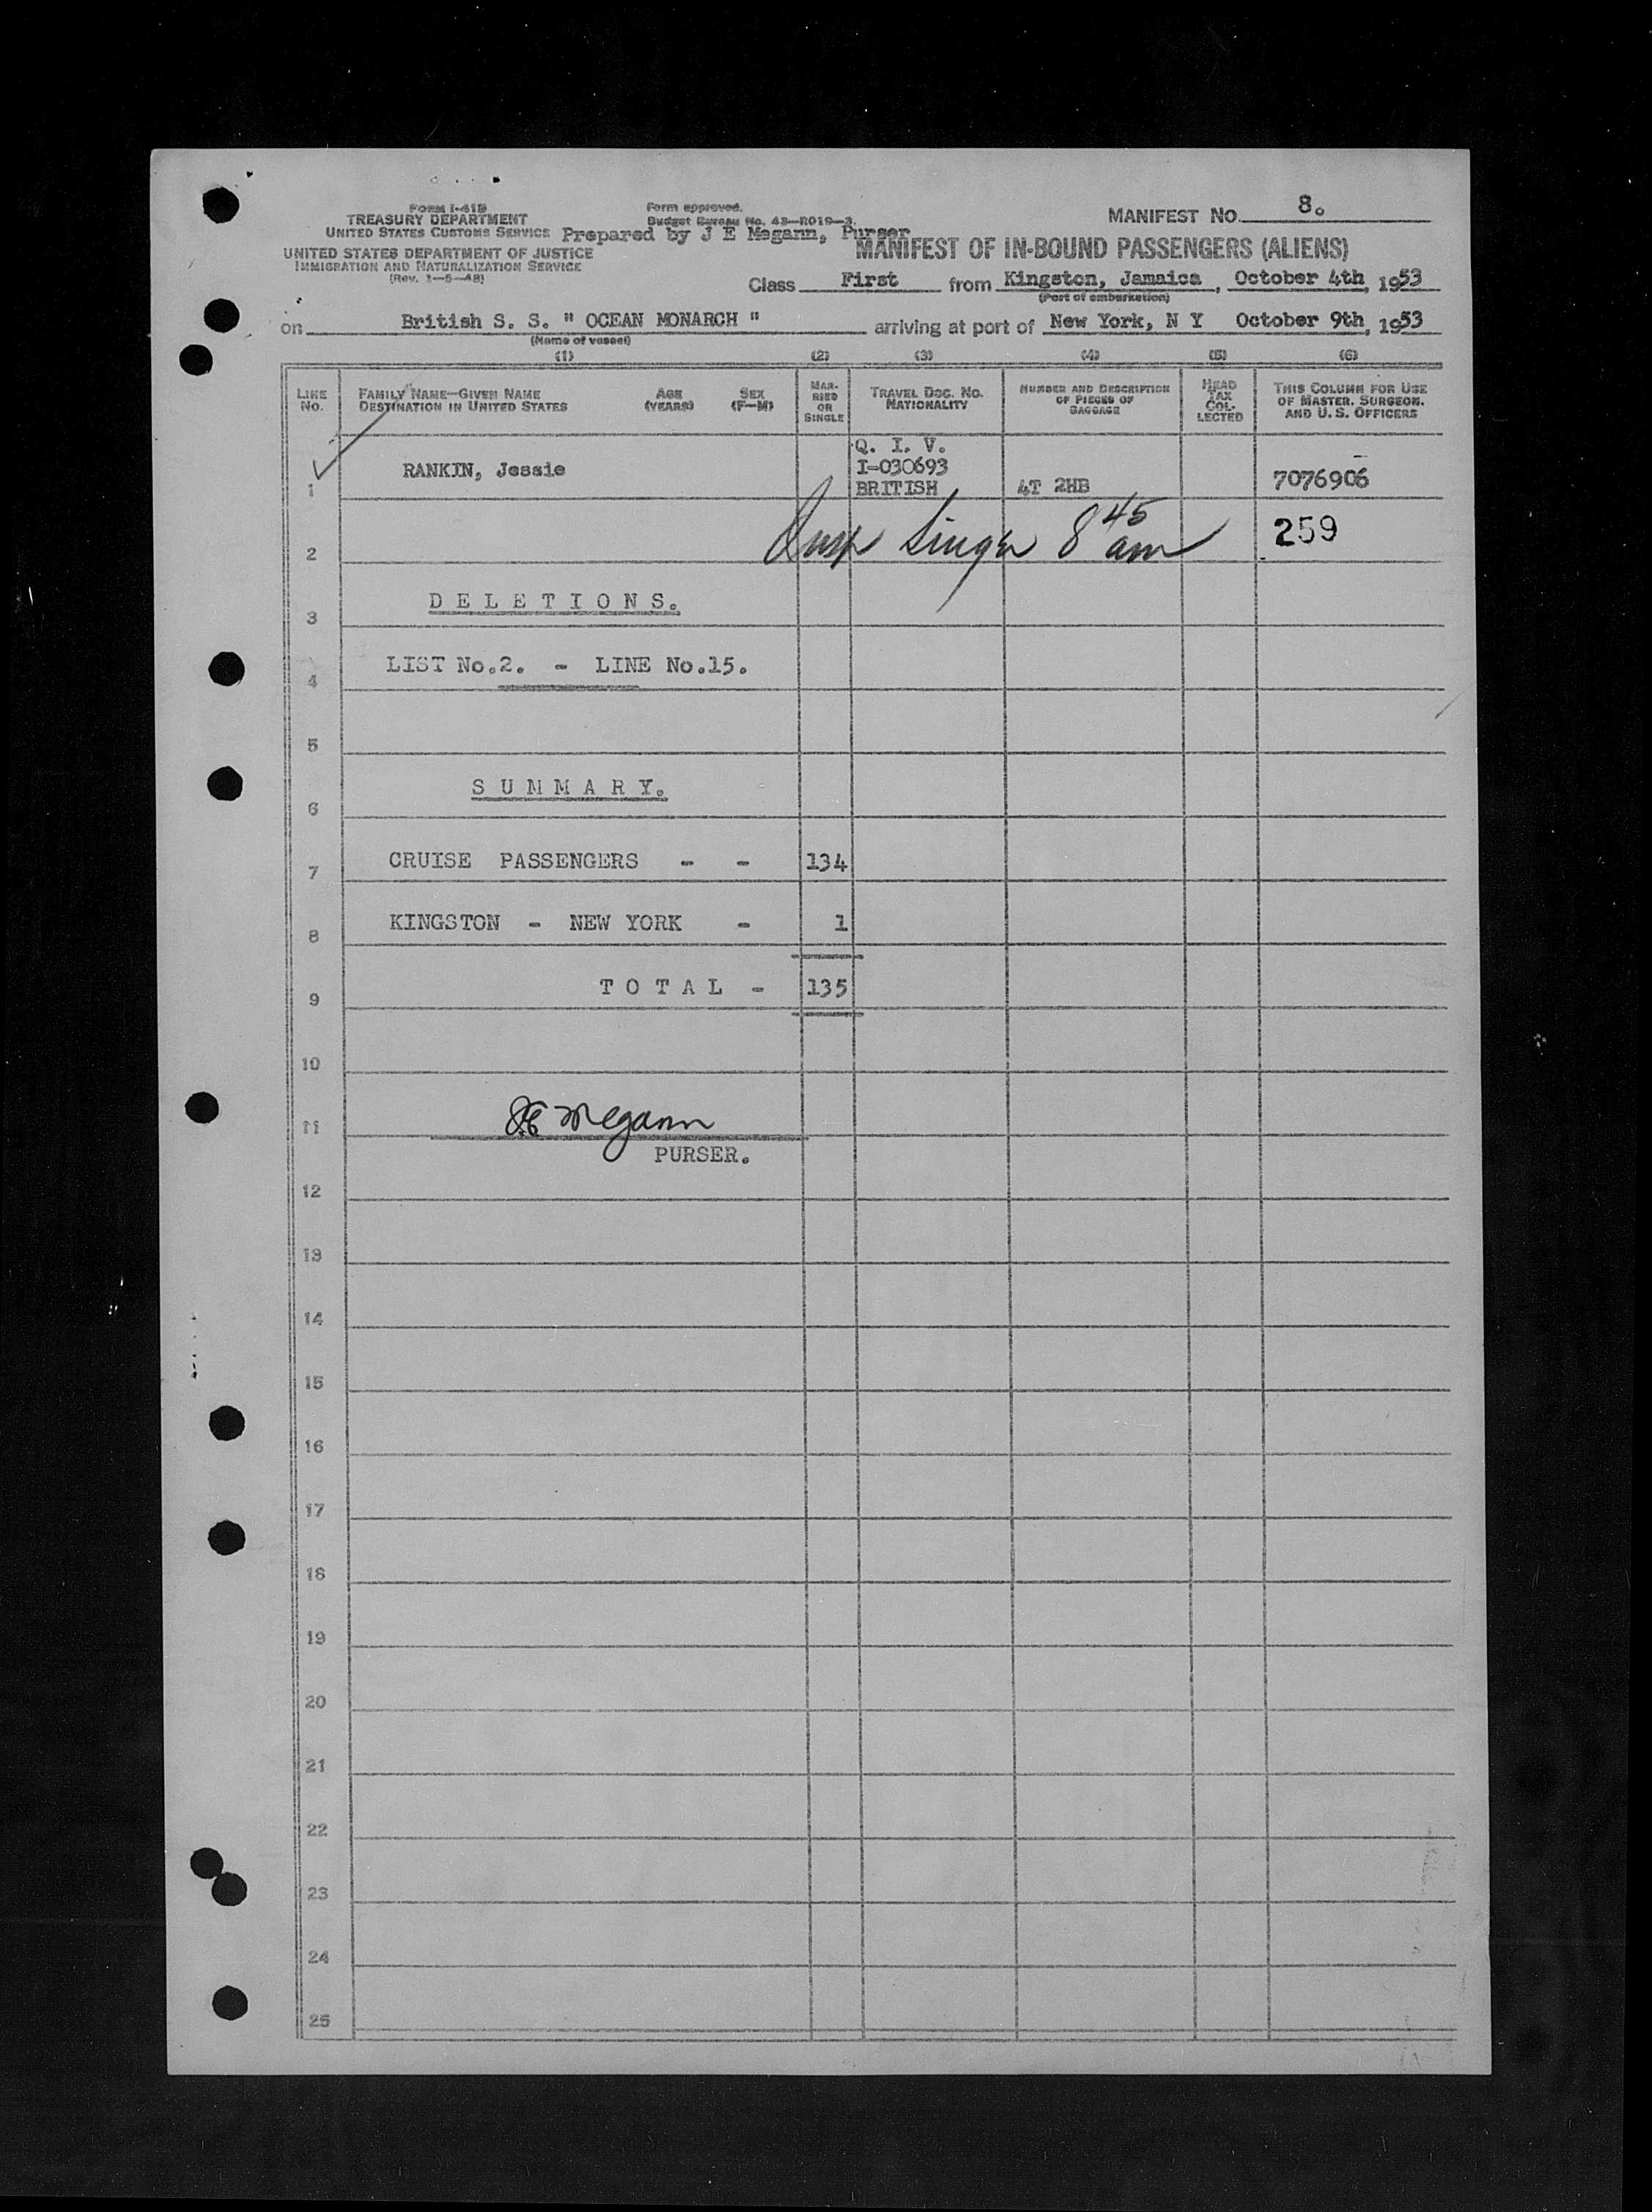 Form I-41B
TREASURY DEPARTMENT
UNITED STATES CUSTOMS SERVICE
UNITED STATES DEPARTMENT OF JUSTICE
IMMIGRATION AND NATURALIZATION SERVICE
(Rev. 1-5-48)
Form approved.
Budget Bureau No. 43-R019-3.
Prepared by J E Megann, Purser
MANIFEST NO. 8.
MANIFEST OF IN-BOUND PASSENGERS (ALIENS)
Class First from Kingston, Jamaica, October 4th, 1953
(Port of embarkation)
on British S. S. " OCEAN MONARCH " arriving at port of New York, N Y October 9th, 1953
(Name of vessel)
(1) (2) (3) (4) (5) (6)
LINE No.
FAMILY NAME—GIVEN NAME
DESTINATION IN UNITED STATES
AGE (YEARS)
SEX (F—M)
MARRIED OR SINGLE
TRAVEL DOC. NO.
NATIONALITY
NUMBER AND DESCRIPTION OF PIECES OF BAGGAGE
HEAD TAX COLLECTED
THIS COLUMN FOR USE OF MASTER, SURGEON, AND U. S. OFFICERS
Q. I. V.
RANKIN, Jessie I-030693
1 BRITISH 4T 2HB 7076906
Insp Singer 8 45 am 259
2
DELETIONS.
3
LIST No.2. - LINE No.15.
4
5
SUMMARY.
6
CRUISE PASSENGERS - - 134
7
KINGSTON - NEW YORK - 1
8
TOTAL - 135
9
10
JE Megann
11
PURSER.
12
13
14
15
16
17
18
19
20
21
22
23
24
25